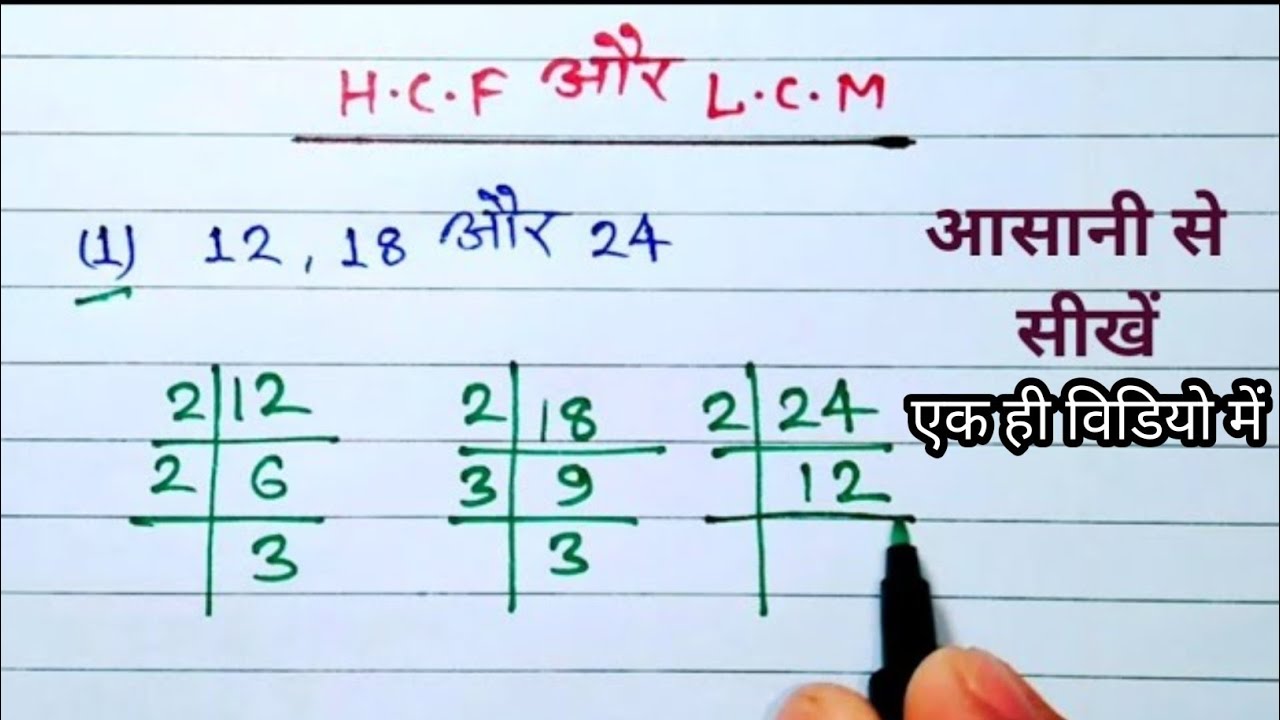 H.C.F और L.C.M
(1) 12, 18 और 24
आसानी से
सीखें
एक ही विडियो में
2 12
2 6
3
2 18
3 9
3
2 24
12